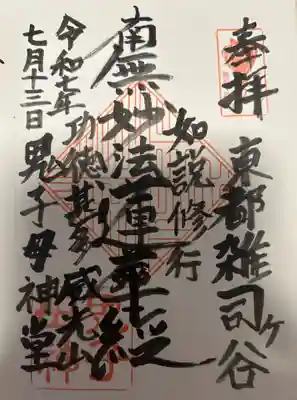 奉拝
東都雑司ヶ谷
如説修行
南無妙法蓮華経
功徳甚多
威光山
令和七年
七月十三日
鬼子母神堂